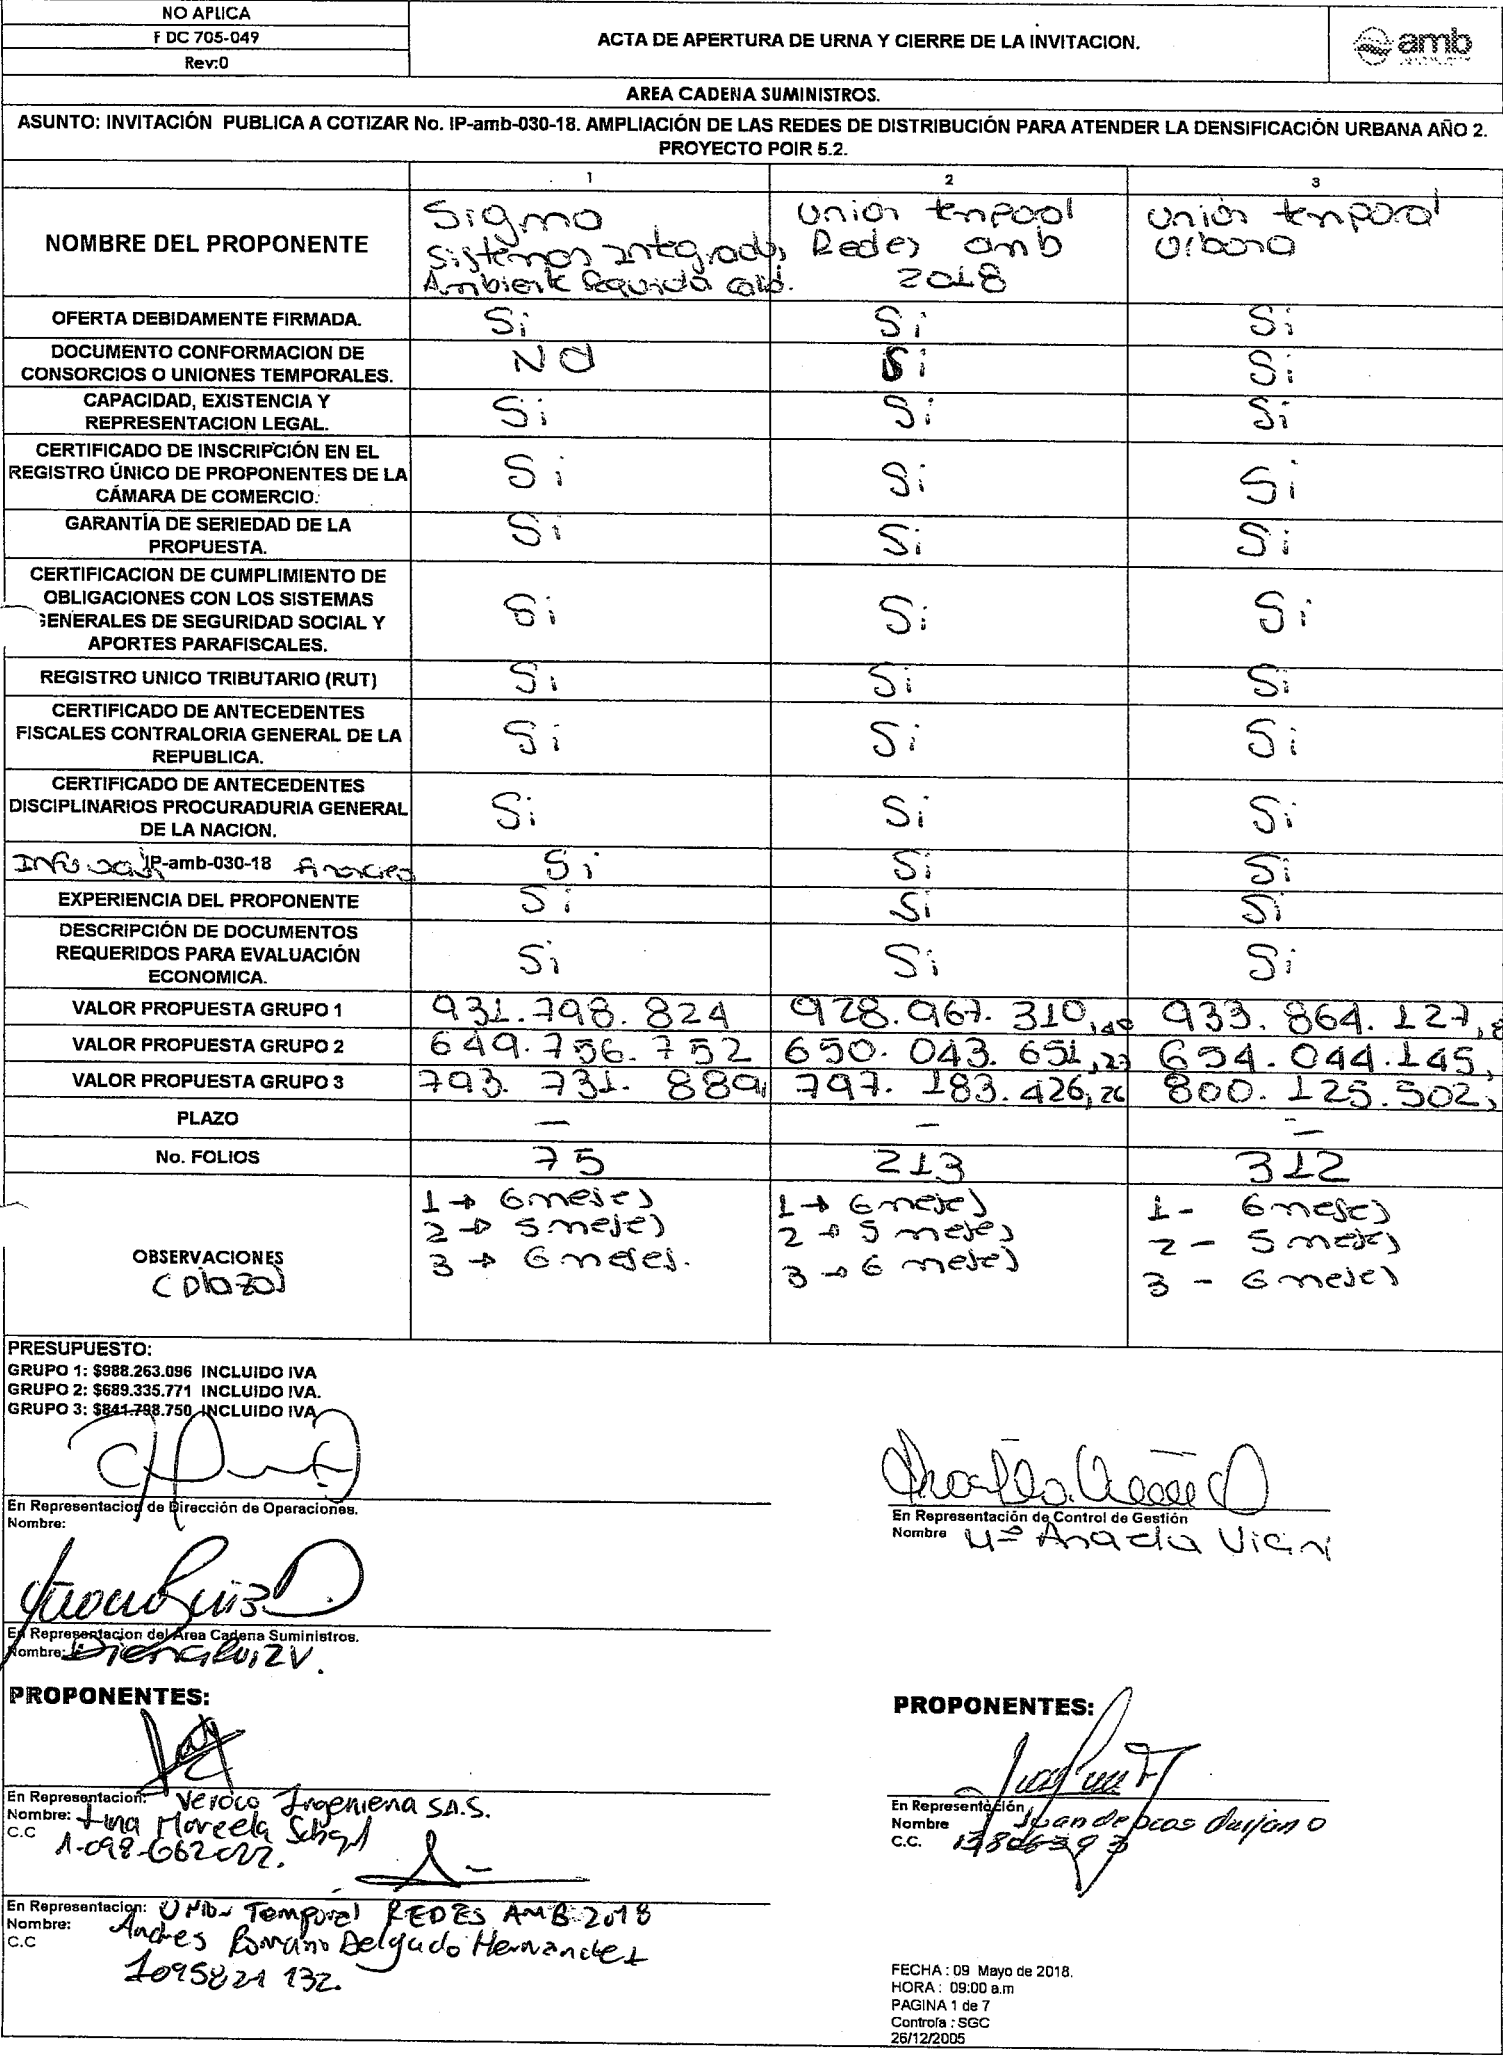 NO APLICA
F DC 705-049
Rev:0
ACTA DE APERTURA DE URNA Y CIERRE DE LA INVITACION.
amb
AREA CADENA SUMINISTROS.
ASUNTO: INVITACIÓN PUBLICA A COTIZAR No. IP-amb-030-18. AMPLIACIÓN DE LAS REDES DE DISTRIBUCIÓN PARA ATENDER LA DENSIFICACIÓN URBANA AÑO 2.
PROYECTO POIR 5.2.
1 2 3
NOMBRE DEL PROPONENTE
Sigma
Sistemas Integrados
Ambiente Seguridad Calid.
Unión temporal
Redes amb
2018
Unión temporal
Urbana
OFERTA DEBIDAMENTE FIRMADA. Si Si Si
DOCUMENTO CONFORMACION DE
CONSORCIOS O UNIONES TEMPORALES. NO Si Si
CAPACIDAD, EXISTENCIA Y
REPRESENTACION LEGAL. Si Si Si
CERTIFICADO DE INSCRIPCIÓN EN EL
REGISTRO ÚNICO DE PROPONENTES DE LA
CÁMARA DE COMERCIO. Si Si Si
GARANTÍA DE SERIEDAD DE LA
PROPUESTA. Si Si Si
CERTIFICACION DE CUMPLIMIENTO DE
OBLIGACIONES CON LOS SISTEMAS
GENERALES DE SEGURIDAD SOCIAL Y
APORTES PARAFISCALES. Si Si Si
REGISTRO UNICO TRIBUTARIO (RUT) Si Si Si
CERTIFICADO DE ANTECEDENTES
FISCALES CONTRALORIA GENERAL DE LA
REPUBLICA. Si Si Si
CERTIFICADO DE ANTECEDENTES
DISCIPLINARIOS PROCURADURIA GENERAL
DE LA NACION. Si Si Si
IP-amb-030-18 Si Si Si
EXPERIENCIA DEL PROPONENTE Si Si Si
DESCRIPCIÓN DE DOCUMENTOS
REQUERIDOS PARA EVALUACIÓN
ECONOMICA. Si Si Si
VALOR PROPUESTA GRUPO 1 931.798.824 928.967.310,40 933.864.127,
VALOR PROPUESTA GRUPO 2 649.756.752 650.043.651,27 654.044.145,
VALOR PROPUESTA GRUPO 3 793.731.889, 797.183.426,26 800.125.502,
PLAZO — - —
No. FOLIOS 75 213 312
OBSERVACIONES
(plazo)
1 → 6 meses
2 → 5 meses
3 → 6 meses.
1 → 6 meses
2 → 5 meses
3 → 6 meses
1 - 6 meses
2 - 5 meses
3 - 6 meses
PRESUPUESTO:
GRUPO 1: $988.263.096 INCLUIDO IVA
GRUPO 2: $689.335.771 INCLUIDO IVA.
GRUPO 3: $841.798.750 INCLUIDO IVA
En Representacion de Dirección de Operaciones.
Nombre:
En Representación de Control de Gestión
Nombre
En Representacion del Area Cadena Suministros.
Nombre: Diana Ruiz V.
PROPONENTES:
En Representacion: Veroco Ingenieria S.A.S.
Nombre:
C.C
PROPONENTES:
En Representación
Nombre
C.C.
En Representacion: Unión Temporal REDES AMB 2018
Nombre: Andres Romano Delgado Hernandez
C.C 1095821 132.
FECHA : 09 Mayo de 2018.
HORA : 09:00 a.m
PAGINA 1 de 7
Controla : SGC
26/12/2005